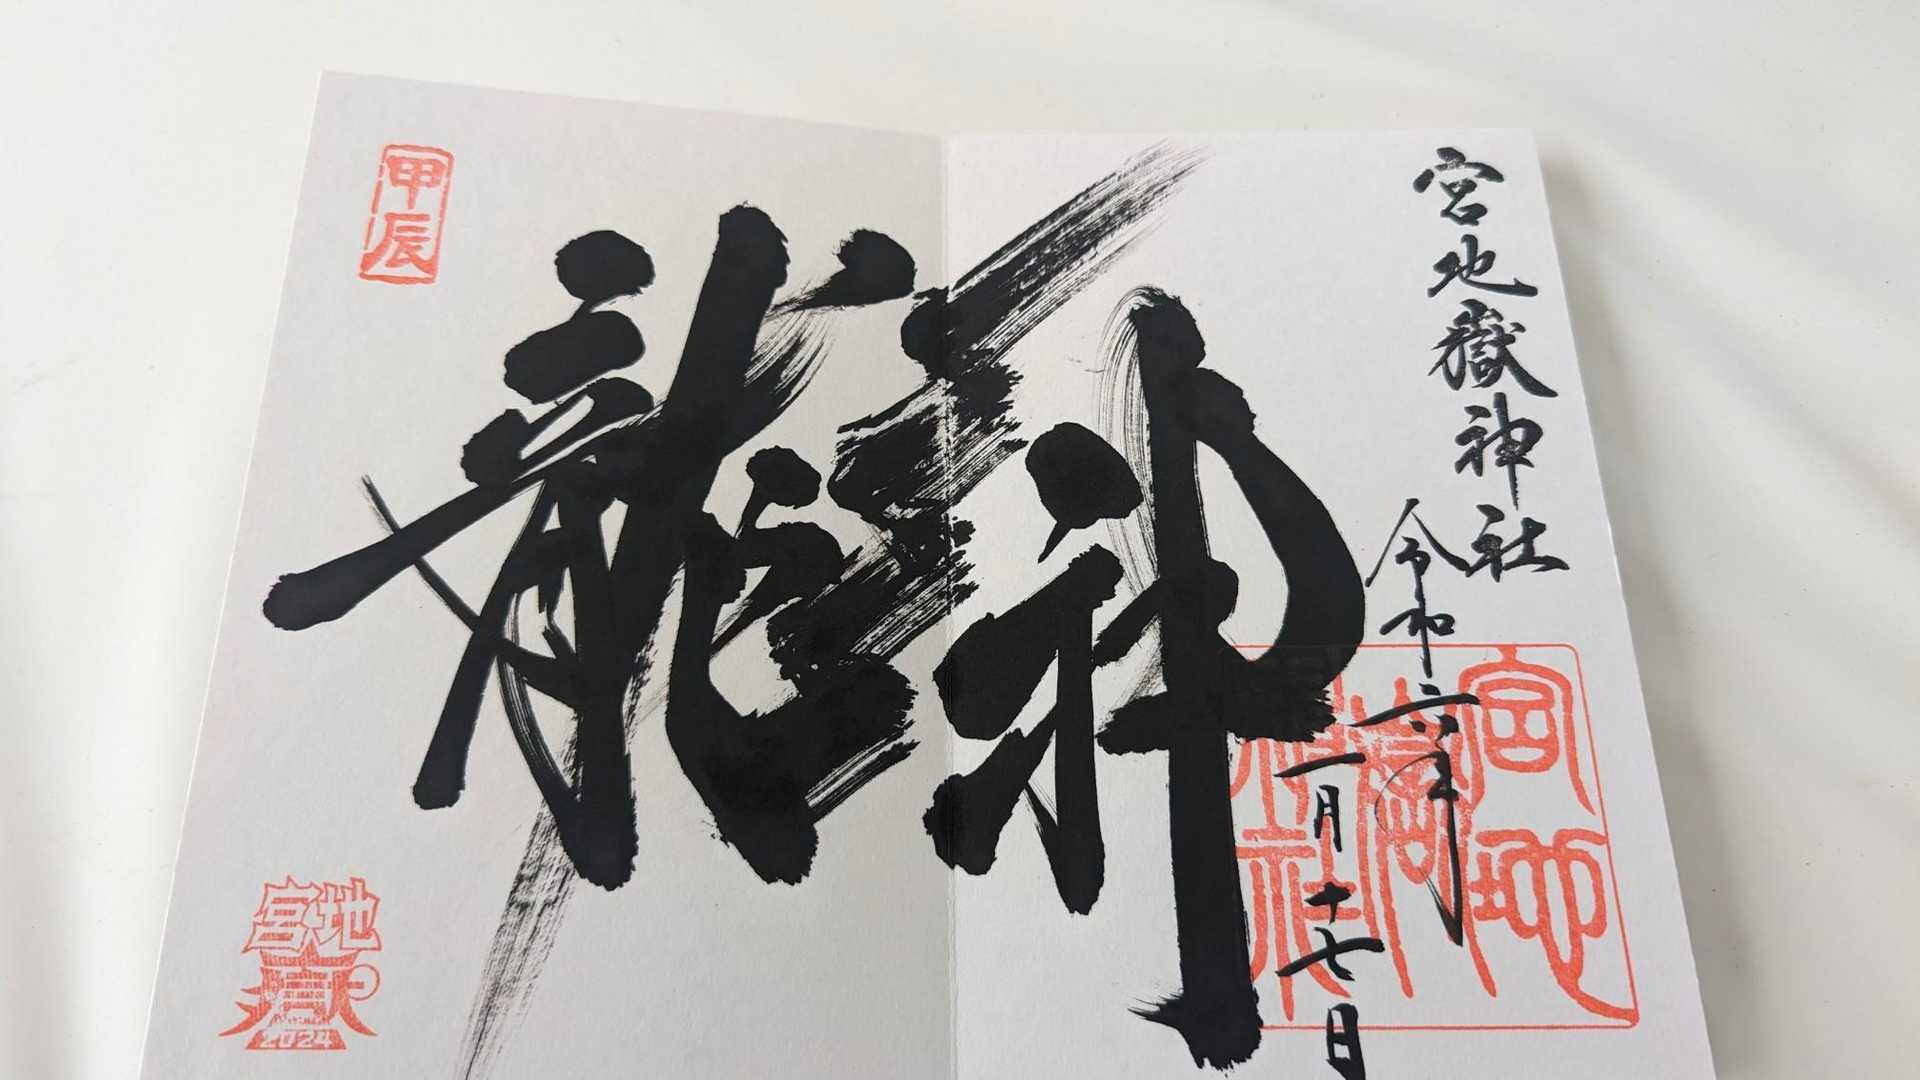 宮地嶽神社
令和六年
一月十七日
宮地
嶽
神社
龍神
甲辰
宮地
嶽
2024